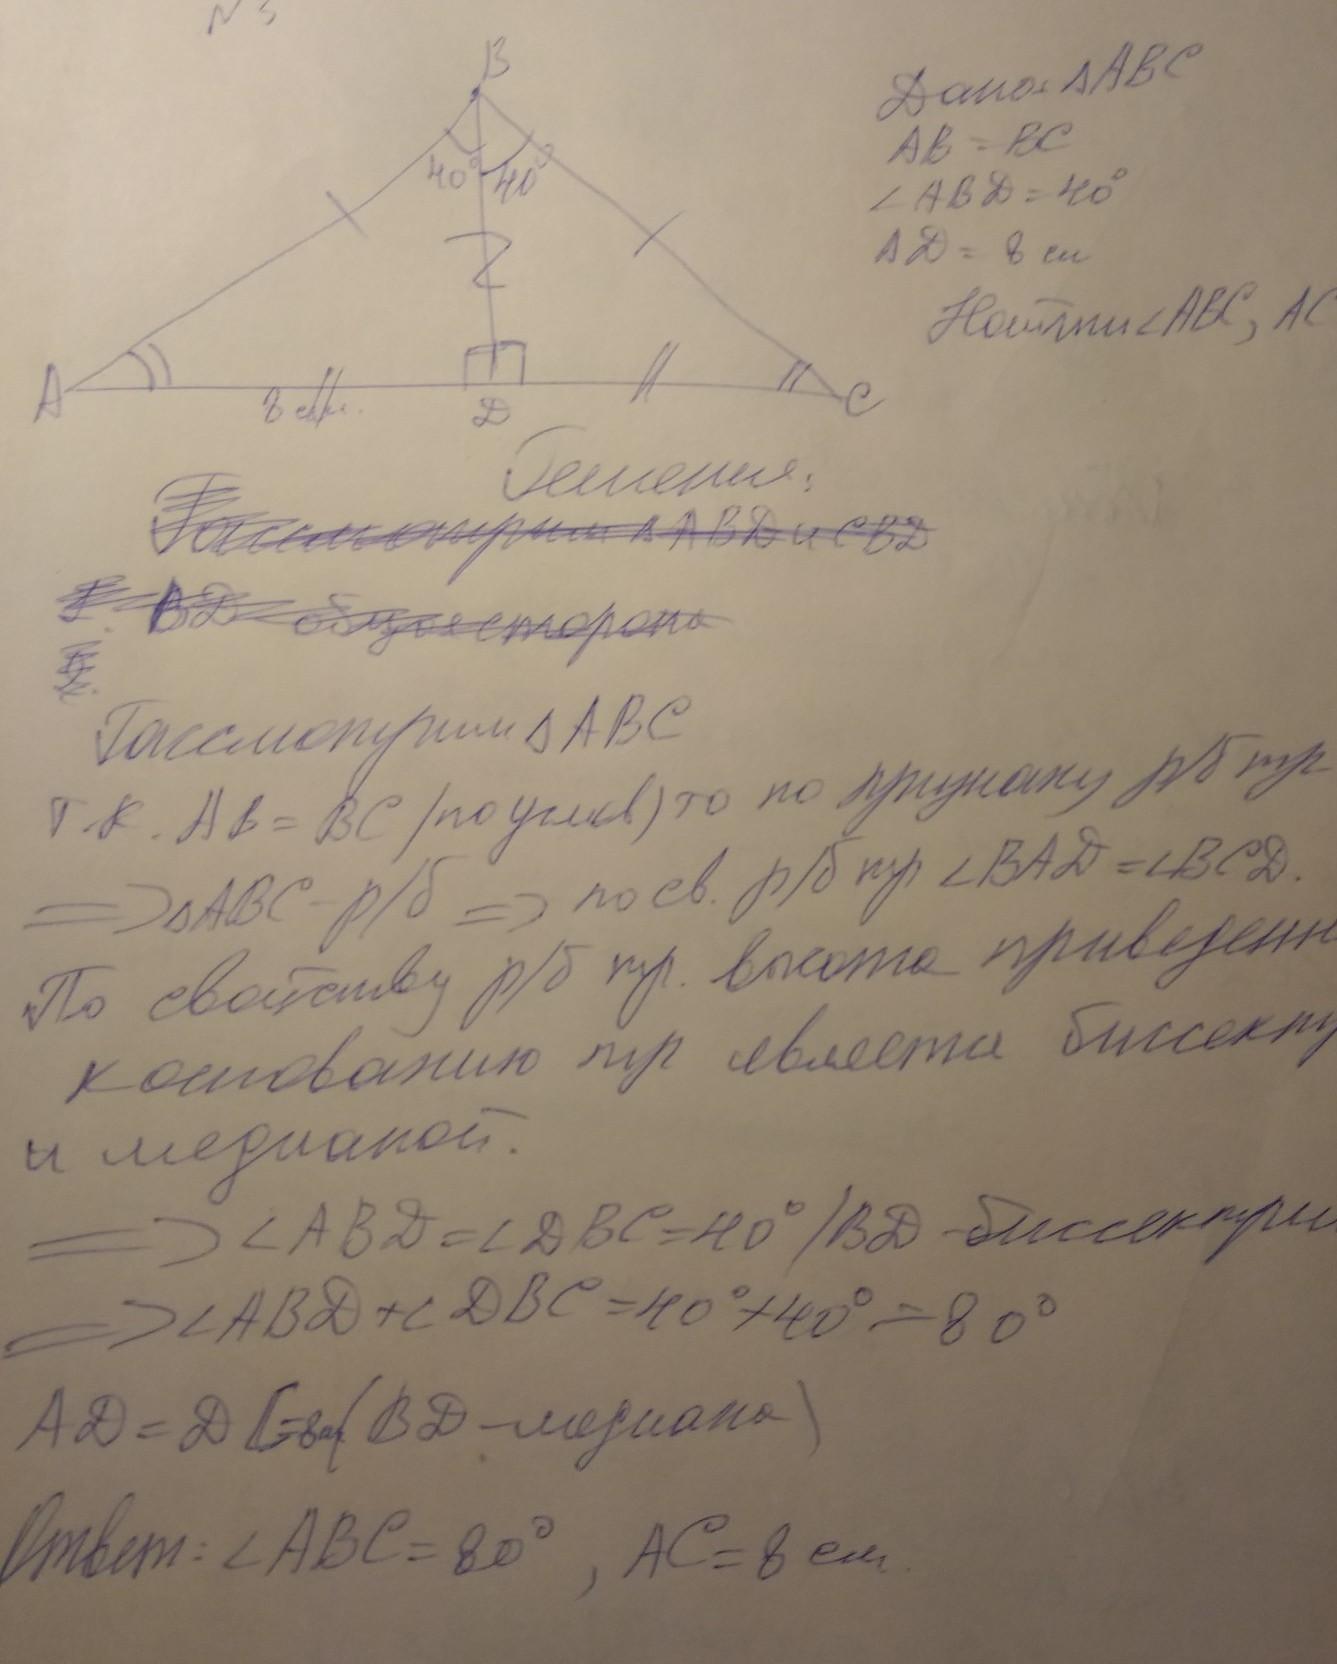 N 3
B
40° 40°
A 8 см. D C
Дано: ΔABC
AB = BC
∠ABD = 40°
AD = 8 см
Найти ∠ABC, AC
Решения:
Рассмотрим Δ ABD и CBD
1. BD общая сторона
2.
Рассмотрим Δ ABC
Т.к. AB = BC (по услов) то по признаку р/б тр
=> ΔABC - р/б => по св. р/б тр ∠BAD = ∠BCD.
По свойству р/б тр. высота приведенн
к основанию тр является биссектр
и медианой.
=> ∠ABD = ∠DBC = 40° (BD - биссектри
=> ∠ABD + ∠DBC = 40° + 40° = 80°
AD = DC = 8см (BD - медиана)
Ответ: ∠ABC = 80°, AC = 8 см.